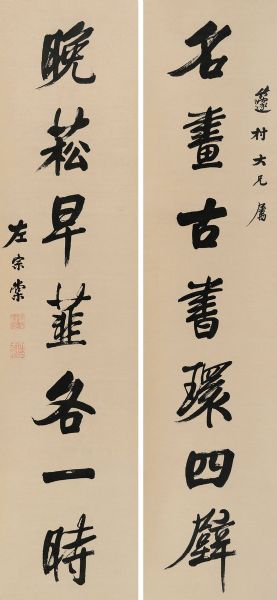 村大兄属
名畫古書環四壁
晚菘早韮各一時
左宗棠